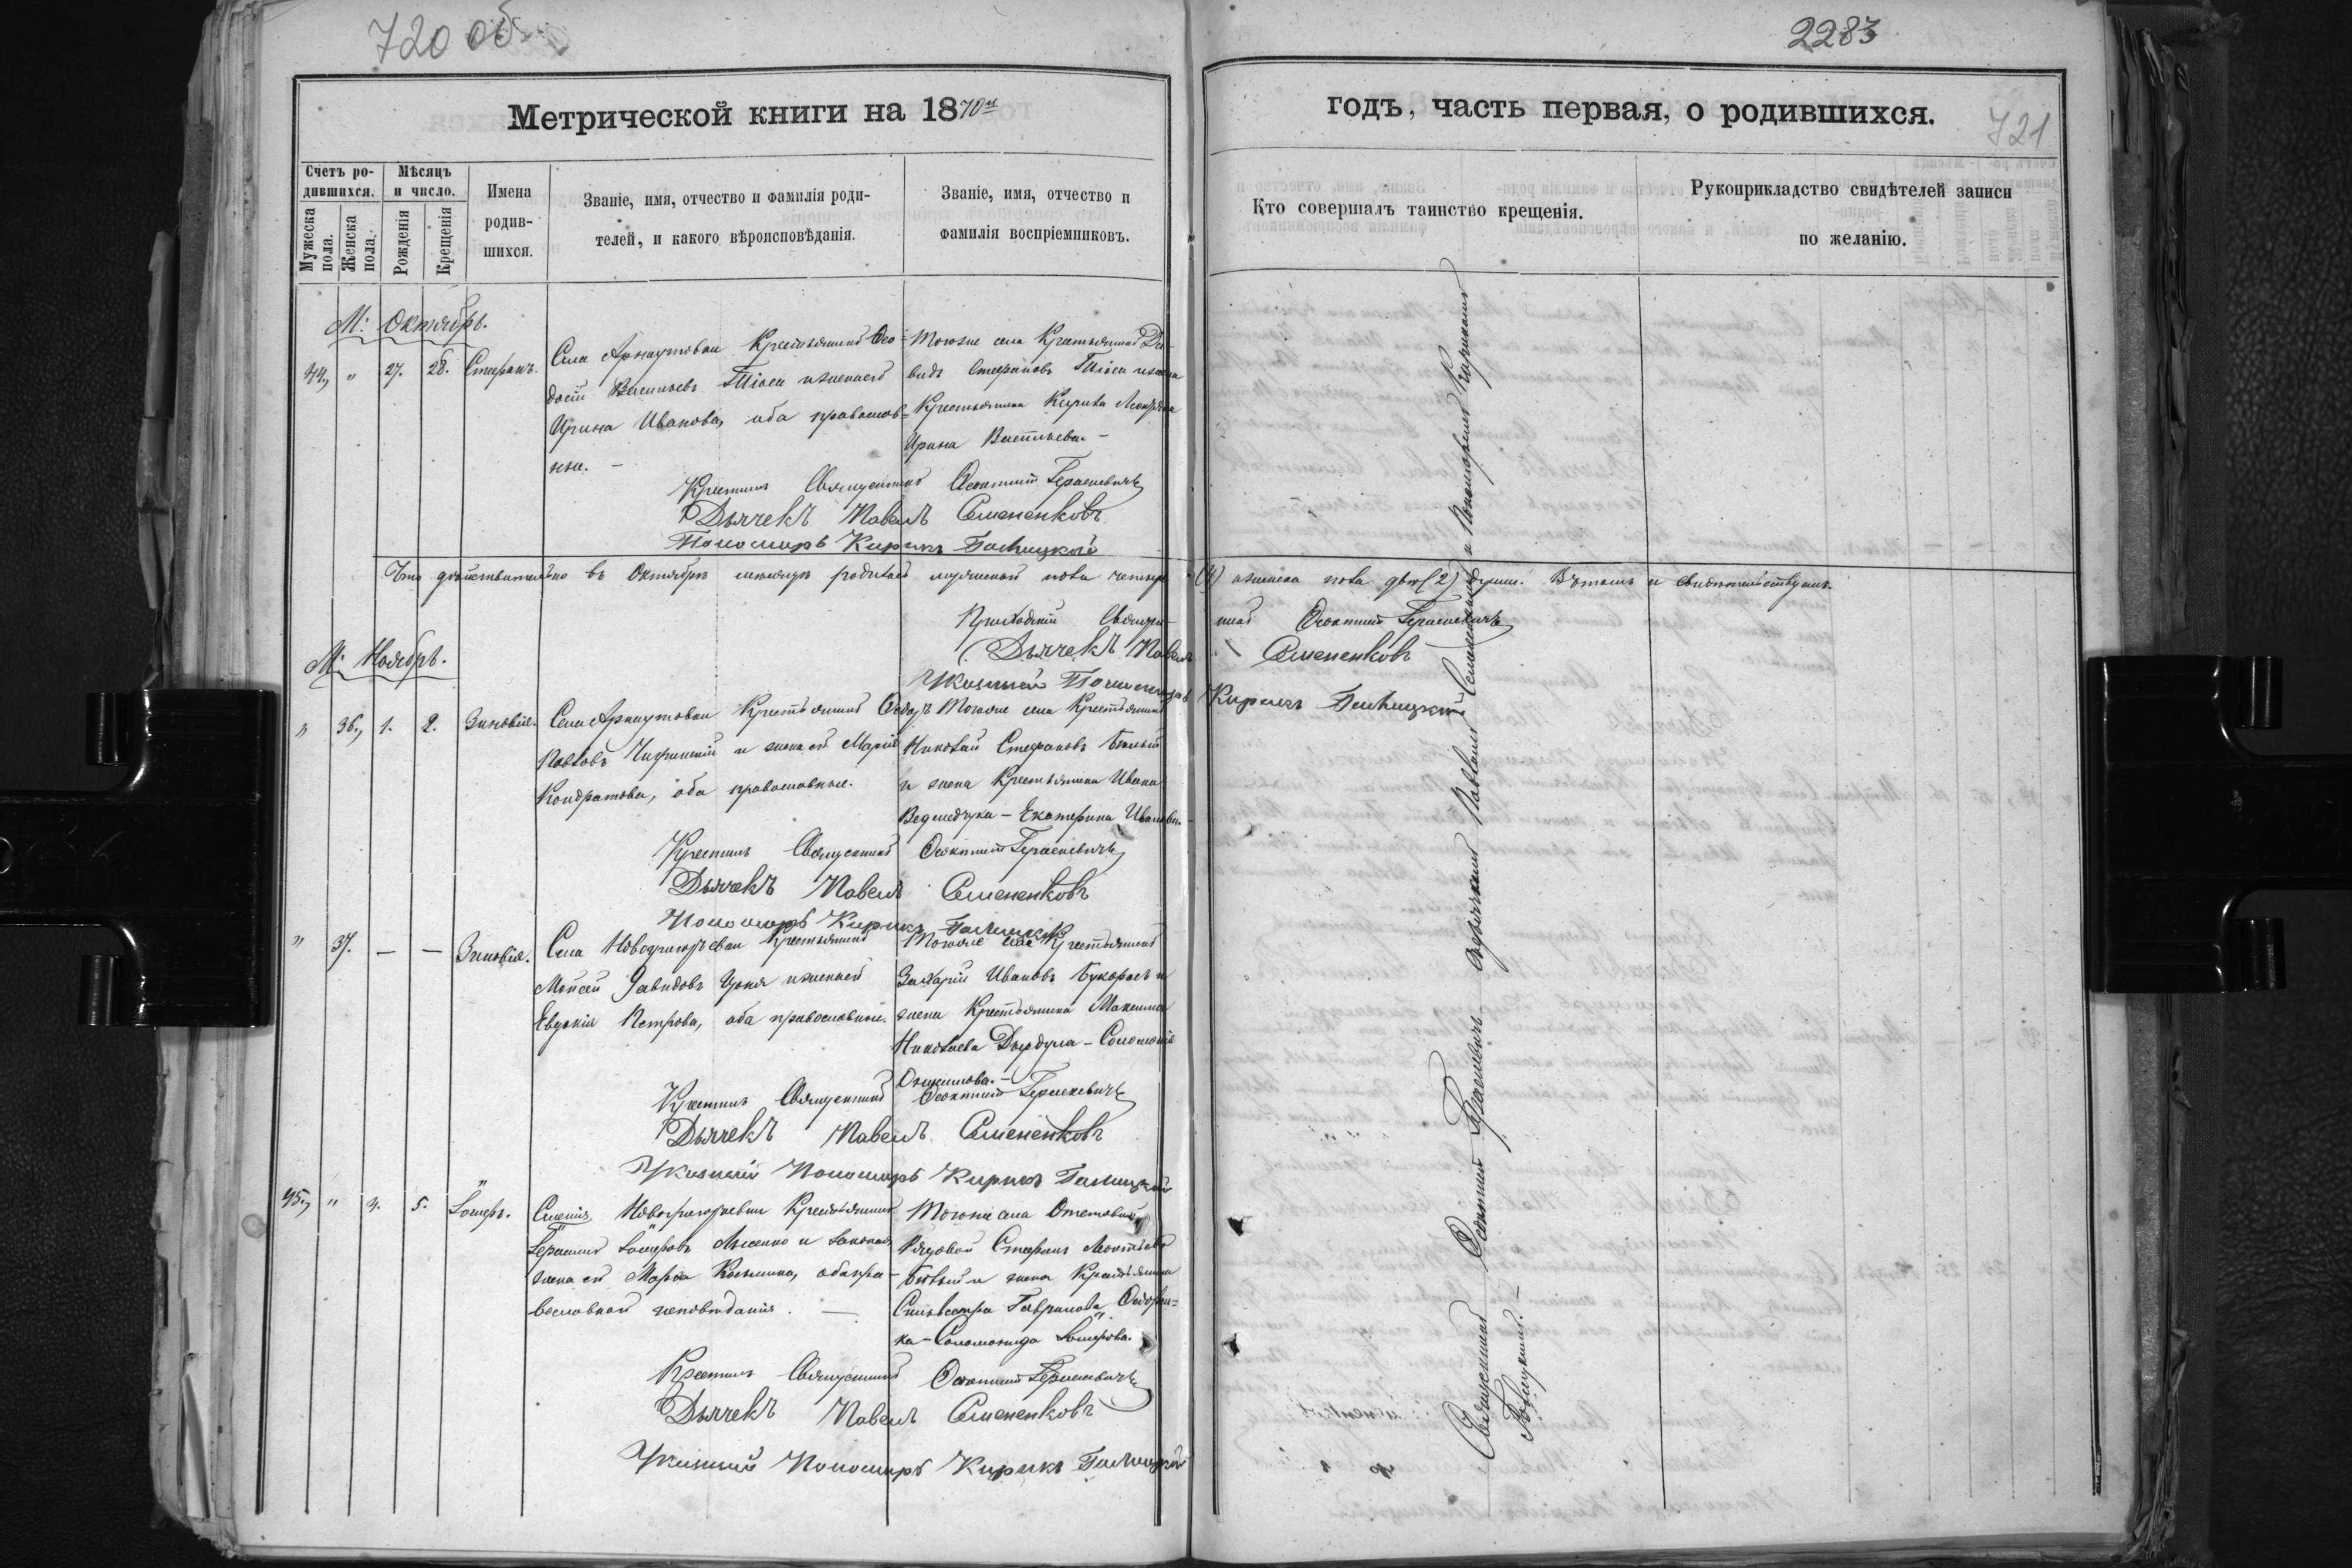 720 об
2283
721
Метрической книги на 1870й
годъ, часть первая, о родившихся.
Счетъ ро-
дившихся.
Мужеска
пола.
Женска
пола.
Мѣсяцъ
и число.
Рожденія
Крещенія
Имена
родив-
шихся.
Званіе, имя, отчество и фамилія роди-
телей, и какого вѣроисповѣданія.
Званіе, имя, отчество и
фамилія воспріемниковъ.
Кто совершалъ таинство крещенія.
Рукоприкладство свидѣтелей записи
по желанію.
М: Октябрь.
44, " 27. 28. Стефанъ.
Села Арнаутовки Крестьянинъ Ѳео-
досій Васильевъ
Ирина Иванова, оба православ-
ные. –
Тогоже села Крестьянинъ Да-
видъ Стефановъ
Крестьянина Кирила
Ирина Васильева. –
Крестилъ Священникъ Ѳеоктистъ Герасневичъ
Дьячекъ Павелъ Семененковъ
Пономарь Кирикъ Галицкій
Что дѣйствительно въ Октябрѣ мѣсяцѣ родилось мужеска пола четыре (4) а женска пола двѣ (2) души. Въ томъ и свидѣтельствуемъ.
Приходскій Священникъ Ѳеоктистъ Герасневичъ
Дьячекъ Павелъ Семененковъ
Указный Пономарь Кирикъ Галицкій
М: Ноябрь.
" 36, 1. 2. Зиновія.
Села Арнаутовки Крестьянинъ Ѳедоръ
Павловъ и жена ей Марія
Кондратова, оба православные.
Тогоже села Крестьянинъ
Николай Стефановъ Бѣлый
и жена Крестьянина Ивана
Ведмедчука – Екатерина Иванова. –
Крестилъ Священникъ Ѳеоктистъ Герасневичъ
Дьячекъ Павелъ Семененковъ
Пономарь Кирикъ Галицкій
" 37. – – Зиновія.
Села Новогригорьевки Крестьянинъ
Моисей Давидовъ
Евдокія Петрова, оба православные.
Тогоже села Крестьянинъ
Захарій Ивановъ и
жена Крестьянина Максима
Николаева – Соломонія
Крестилъ Священникъ Ѳеоктистъ Герасневичъ
Дьячекъ Павелъ Семененковъ
Указный Пономарь Кирикъ Галицкій
45, " 4. 5.
Новогригорьевки Крестьянинъ
Лысенко и законная
жена ей Марѳа Косьмина, оба пра-
вославнаго исповѣданія. –
Тогоже села Отставной
Рядовой Стефанъ Леонтьевъ
Бѣлый и жена Крестьянина
Сильвестра Гаврилова Ѳедорен-
ка – Соломонида
Крестилъ Священникъ Ѳеоктистъ Герасневичъ
Дьячекъ Павелъ Семененковъ
Указный Пономарь Кирикъ Галицкій
Священникъ Ѳеоктистъ Герасневичъ съ дьячкомъ Павломъ Семененкомъ и Пономаремъ Кирикомъ
Галицкимъ. –